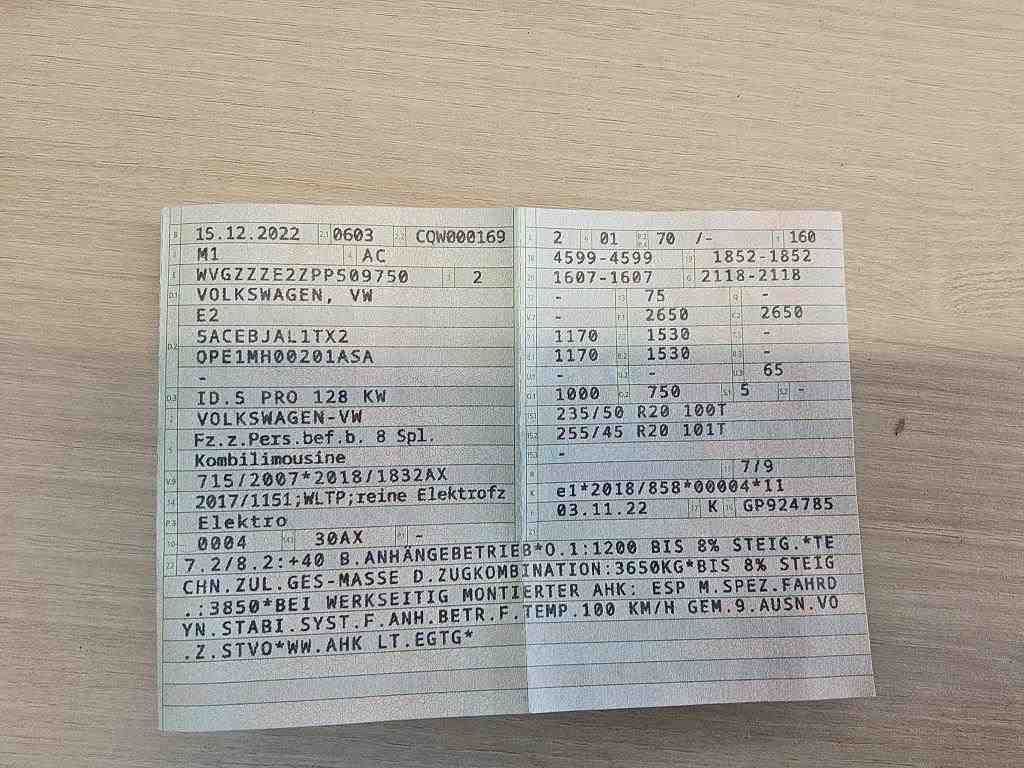 15.12.2022 0603 CQW000169
M1 AC
WVGZZZE2ZPP509750 2
VOLKSWAGEN, VW
E2
5ACEBJAL1TX2
OPE1MH00201ASA
-
ID.5 PRO 128 KW
VOLKSWAGEN-VW
Fz.z.Pers.bef.b. 8 Spl.
Kombilimousine
715/2007*2018/1832AX
2017/1151;WLTP;reine Elektrofz
Elektro
0004 30AX -
2 01 70 /- 160
4599-4599 1852-1852
1607-1607 2118-2118
- 75 -
- 2650 2650
1170 1530 -
1170 1530 -
- - 65
1000 750 5 -
235/50 R20 100T
255/45 R20 101T
-
7/9
e1*2018/858*00004*11
03.11.22 K GP924785
7.2/8.2:+40 B.ANHÄNGEBETRIEB*O.1:1200 BIS 8% STEIG.*TE
CHN.ZUL.GES-MASSE D.ZUGKOMBINATION:3650KG*BIS 8% STEIG
.:3850*BEI WERKSEITIG MONTIERTER AHK: ESP M.SPEZ.FAHRD
YN.STABI.SYST.F.ANH.BETR.F.TEMP.100 KM/H GEM.9.AUSN.VO
.Z.STVO*WW.AHK LT.EGTG*